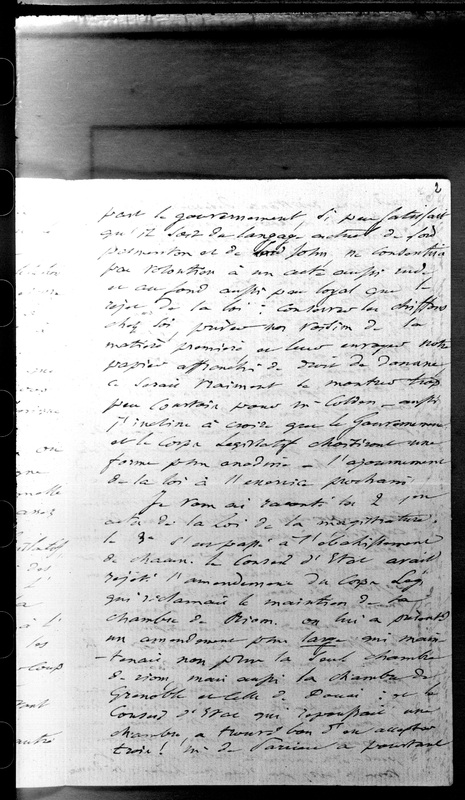 2
part le gouvernement, si peu satisfait
qu'il soit du langage actuel de Lord
palmerston et de Lord John, ne consentira
pas volontiers à un acte aussi rude
et au fond aussi peu loyal que le
rejet de la loi : conserver les chiffons
chez soi, priver nos voisins de la
matière première et leur envoyer notre
papier affranchi de droit de douane
ce serait vraiment se montrer trop
peu courtois pour Mr Cobden - aussi
j'incline à croire que le Gouvernement
et le Corps Legislatif choisiront une
forme plus anodine - l'ajournement
de la loi à l'exercice prochain.
Je vous ai raconté les 2 1ers
actes de la loi de la magistrature.
le 3e s'est passé à l'
de chacun. le Conseil d'Etat avait
rejeté l'amendement du Corps Leg.
qui réclamait le maintien de la
chambre de Riom. on lui a présenté
un amendement plus large qui main-
-tenait non plus la seule chambre
de riom, mais aussi la chambre de
Grenoble et celle de Douai : et le
Conseil d'Etat qui repoussait une
chambre, a trouvé bon d'en accepter
trois ! Mr de a pourtant